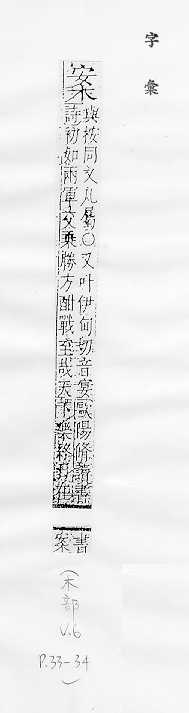 字彙
案
與按同文几曷○又叶伊甸切音宴歐陽修讀書
詩初如兩軍交乘勝方酣戰至哉天下樂終日在
書案
(木部
V.6
P.33-34
)